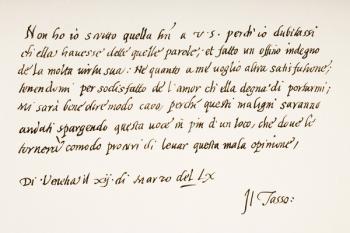 Non ho io scritto quella lra a V. S. perch'io dubitassi
ch'ella havesse dette quelle parole; et fatto un offitio indegno
de la molta virtu sua: Né quanto a me voglio altra satisfattione;
tenendomi per sodisfatto de l'amor ch'ella degna di portarmi;
Mi sarà bene di remodo caro, perché questi maligni saranno
andati spargendo questa voce in più d'un loco, che dove le
tornerà comodo procuri di levar questa mala opinione,
Di Venetia il xij. di Marzo del LX
Il Tasso: